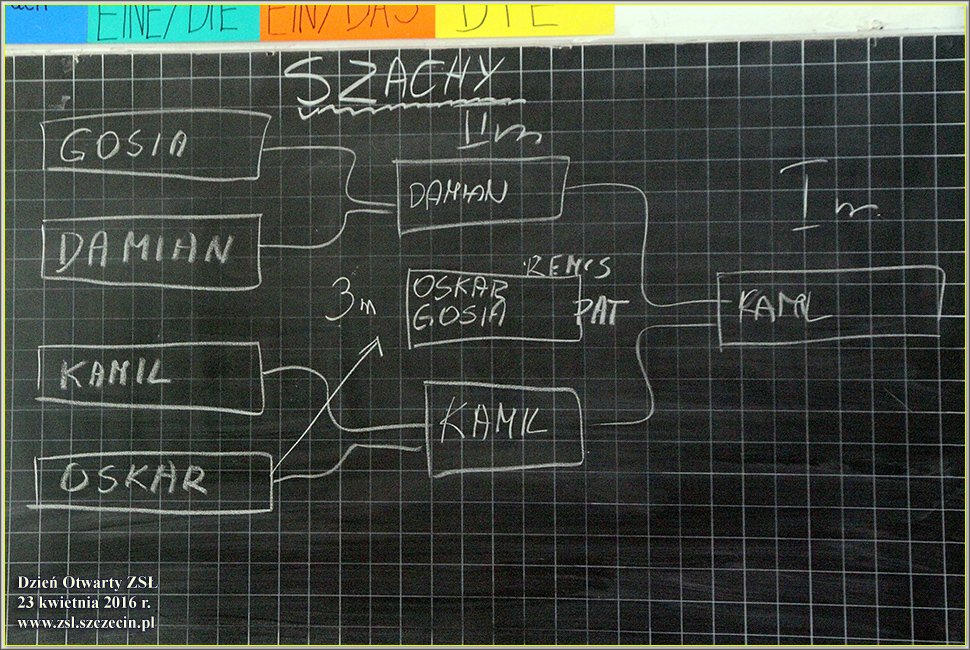 EINE/DIE
EIN/DAS
DIE
SZACHY
II m
GOSIA
DAMIAN
I m.
DAMIAN
REMIS
3 m
OSKAR
GOSIA
PAT
KAMIL
KAMIL
KAMIL
OSKAR
Dzień Otwarty ZSŁ
23 kwietnia 2016 r.
www.zsl.szczecin.pl